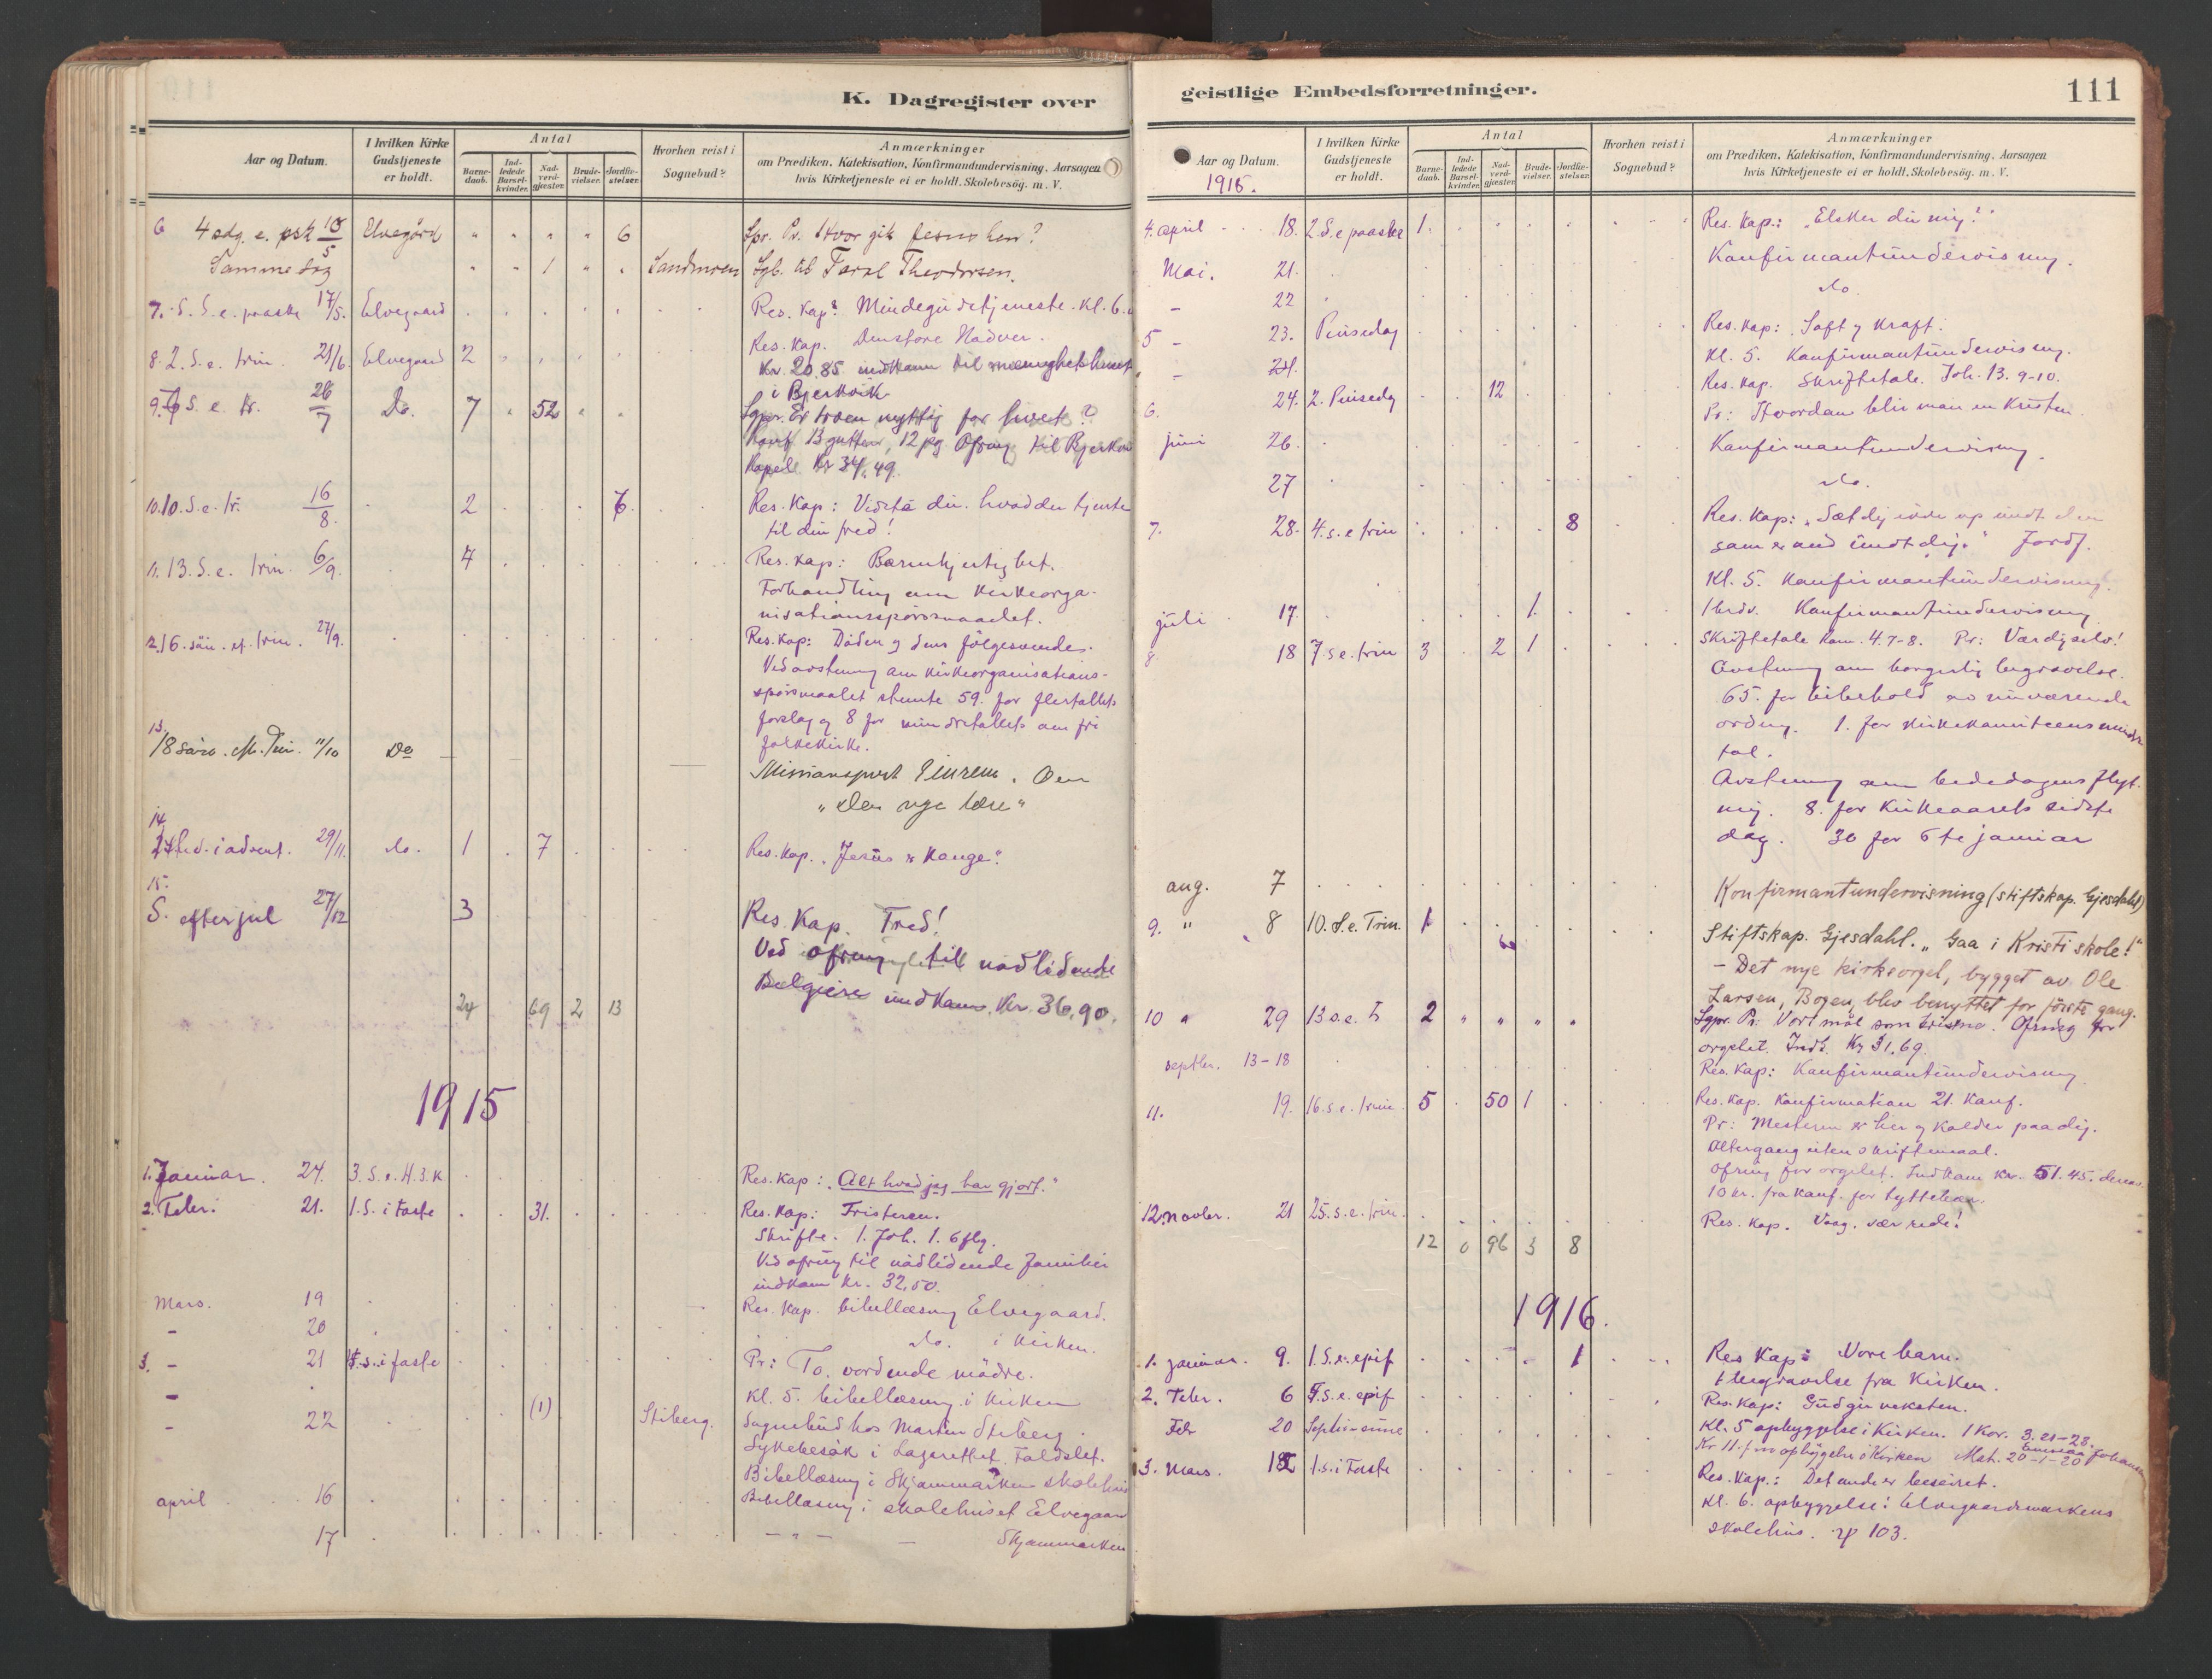 K. Dagregister over
Aar og Datum.
I hvilken Kirke Gudstjeneste er holdt.
Antal
Barnedaab.
Indledede Barselkvinder.
Nadverdgjester.
Brudevielser.
Jordfæstelser.
Hvorhen reist i Sognebud?
Anmærkninger
om Prædiken, Katekisation, Konfirmandundervisning, Aarsagen
hvis Kirketjeneste ei er holdt. Skolebesøg. m. V.
6 4 sdg. e. psk 10/5 Elvegård " " " " 6 Spr. Pr. Hvor gik Jesus hen?
Samme dag " " 1 " " Sandmoen Sgb. til Taral Theodorsen.
7. 5. S. e. paaske 17/5. Elvegaard Res. Kap: Mindegudstjeneste. Kl. 6.
8. 2. S. e. trin. 21/6. Elvegaard 2 Res. Kap. Den store Nadver.
Kr. 20.85 indkom til menighetshuset
i Bjerkvik
9. S. e. tr. 26/7 Do. 7 " 52 " " Sgpr. Er troen nyttig for livet?
Konf. 13 gutter, 12 pg. Ofring til Bjerkvik
Kapel Kr 34,49.
10. 10. S. e. tr. 16/8. 2 6. Res. Kap: Vidste du hvad der tjente
til din fred!
11. 13. S. e. trin. 6/9. 4 Res. Kap: Barmhjertighet.
Forhandling om kirkeorga-
nisationsspørsmaalet.
12. 16. søn. ef. trin. 27/9. Res. Kap: Døden og dens følgesvende.
Ved avstemning om kirkeorganisations-
spørsmaalet stemte 59 for flertallets
forslag og 8 for mindretallets om fri
folkekirke.
13. 18 sønd. eft. Trin. 11/10 Do Missionsprest Einrem. Om
"den nye lære"
14. i advent. 29/11. do. 1 7 Res. Kap. "Jesus er konge".
15. S. efter jul 27/12 3 Res. Kap. Fred!
Ved ofring til nødlidende
Belgiere indkom Kr. 36,90.
24 69 2 13
1915
1. Januar. 24. 3. S. e. H.3.K Res. Kap: "Alt hvad jeg har gjort."
2. Febr: 21. 1. S. i Faste 31. Res. Kap: Fristeren.
Skrifte. 1. Joh. 1. 6 flg.
Ved ofring til nødlidende familier
indkom kr. 32,50.
Mars. 19 Res. Kap. bibellæsning Elvegaard.
- 20 do. i kirken.
3. - 21 S. i faste Pr: To vordende mødre.
- Kl. 5. bibellæsning i kirken
- 22 (1) Stiberg. Sognebud hos Martin Stiberg.
Sykebesøk i Lazarettet
Bibellæsning i Skjommarken skolehus
april 16 Bibellæsning i skolehuset Elvegaar
17 - " - - Skjommarken
geistlige Embedsforretninger.
111
Aar og Datum.
1915.
I hvilken Kirke Gudstjeneste er holdt.
Antal
Barnedaab.
Indledede Barselkvinder.
Nadverdgjester.
Brudevielser.
Jordfæstelser.
Hvorhen reist i Sognebud?
Anmærkninger
om Prædiken, Katekisation, Konfirmandundervisning, Aarsagen
hvis Kirketjeneste ei er holdt. Skolebesøg. m. V.
4. april 18. 2. S. e paaske 1. Res. Kap.: "Elsker du mig?"
Mai. 21. Konfirmantundervisning.
- 22 do.
5 - 23. Pinsedag Res. Kap: Saft og kraft.
- 24. Kl. 5. Konfirmantundervisning.
6. 24. 2. Pinsedag 12 Res. Kap. Skriftetale. Joh. 13. 9-10.
Pr: Hvordan blir man en kristen
juni 26. Konfirmantundervisning.
27 do.
7. 28. 4. s. e trin 8 Res. Kap: "Sæt dig ikke op imot den
som er ond imot dig." Jordf.
Kl. 5. Konfirmantundervisning.
juli 17. 1. 1 brdv. Konfirmantundervisning
8. 18 7. s e. trin 3 2 1 Skriftetale Rom. 4. 7-8. Pr: Vær dig selv!
Avstemning om borgerlig begravelse.
65. for bibehold av nuværende
ordning. 1. for kirkekomiteens mindre
tal.
Avstemning om bededagens flyt-
ning. 8. for kirkeaarets sidste
dag. 30 for 6te januar
aug. 7 Konfirmantundervisning (stiftskap. Gjesdahl)
9. " 8 10. S. e. Trin. 1 Stiftskap. Gjesdahl. "Gaa i Kristi skole!"
- Det nye kirkeorgel, bygget av Ole
Larsen, Bogen, blev benyttet for første gang.
10 " 29 13 s. e. Tr 2 " " " " Sgpr. Pr: Vort mål som kristne. Ofring for
orgelet. Indk. Kr 31,69.
septbr. 13-18 Res. Kap: Konfirmantundervisning
11. 19. 16. s. e. trin. 5 50 1 Res. Kap. Konfirmation 21. Konf.
Pr: Mesteren er her og kalder paa dig.
Altergang uten skriftemaal.
Ofring for orgelet. Indkom Kr. 51.45. derav
10 kr. fra konf. for
12. novbr. 21 25. s. e. trin. Res. Kap. Vaag. vær rede!
12 0 96 3 8
1916.
1. januar. 9. 1. S. e. epif 1 Res Kap: Vore barn.
1 begravelse fra kirken.
2. Febr. 6 S. e. epif Res. Kap:
Febr 20 Kl. 5 opbyggelse i Kirken. 1 Kor. 3. 21-23.
Kl 11. opbyggelse i Kirken Mat. 20-1-20 Johansen
3. Mars. 12 1. s. i Faste Res. Kap.: Det onde er beseiret.
Kl. 6. opbyggelse i Elvegaardsmarkens
skolehus. 103.